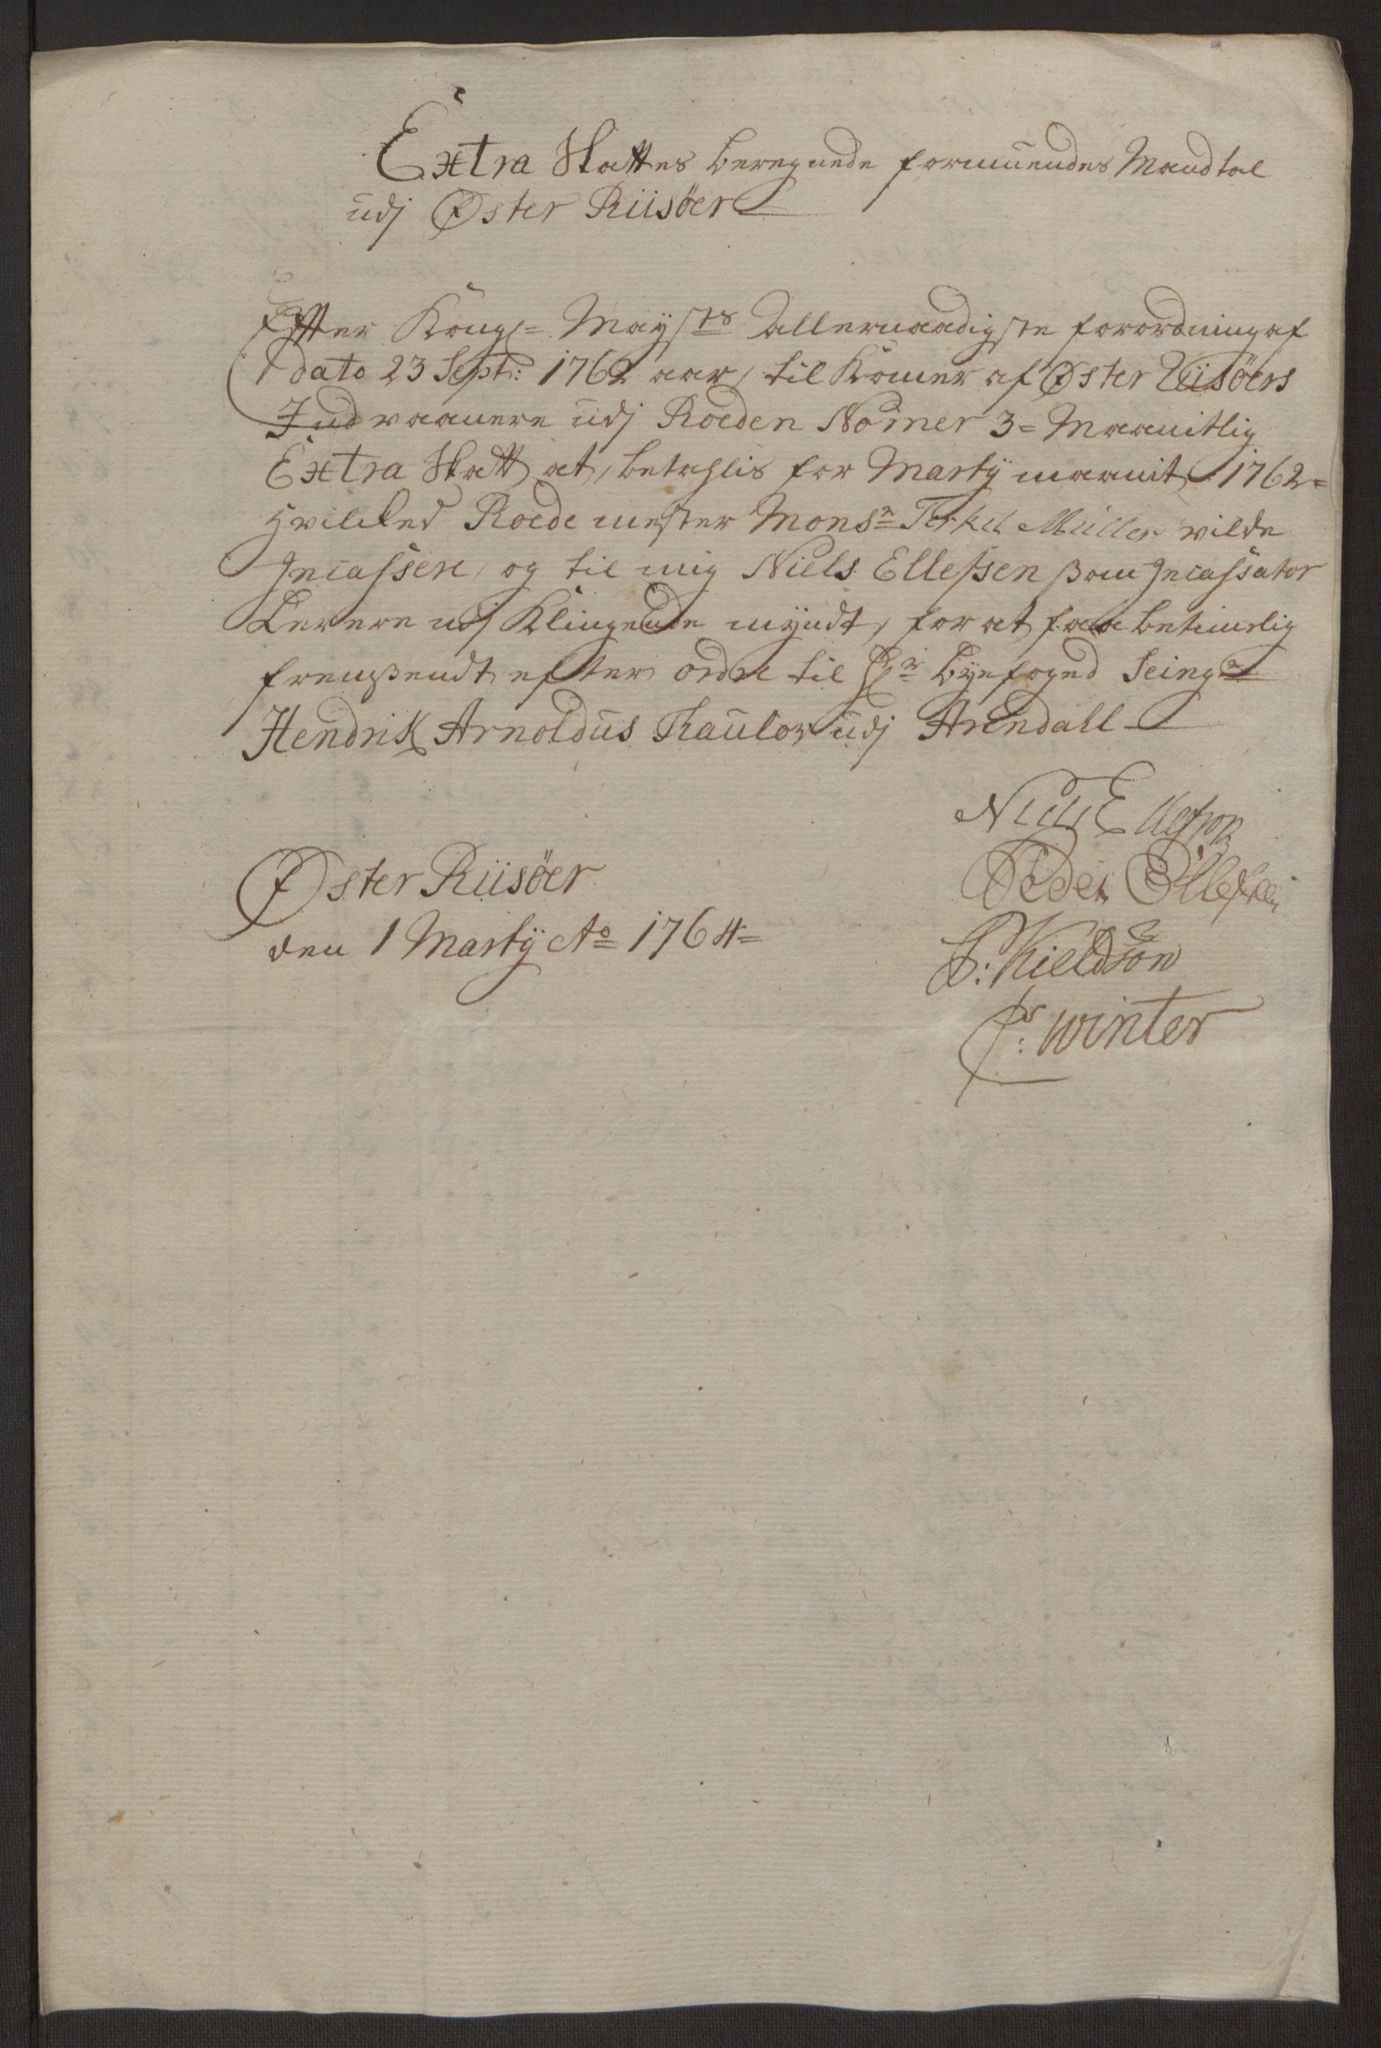 Extra Skattes beregnede formuendes Mandtal
udj Øster Riisöer
Efter Kongl= Mayst:s Allernaadigste forordning af
dato 23 Sept: 1762 aar, til Komer af Øster Riisöers
Indvaanere udj Roeden Nomer 3= Maanitlig
Extra Skatt at, betahlis for Marty maanit 1762=
hvilked Roede mester Monsr Terkel Müller vilde
Incassere, og til mig Niels Ellefsen som Incassator
Levere udj Klingende myndt, for at faae betimelig
fremsendt efter ordre til Hr byefoged Seingr
Hendrik Arnoldus Thaulow udj Arendall
Niels Ellefsen
Øster Riisöer
Peder Ellefsen
den 1 Marty Ao 1764=
P: Kieldsøn
Ps: Winter